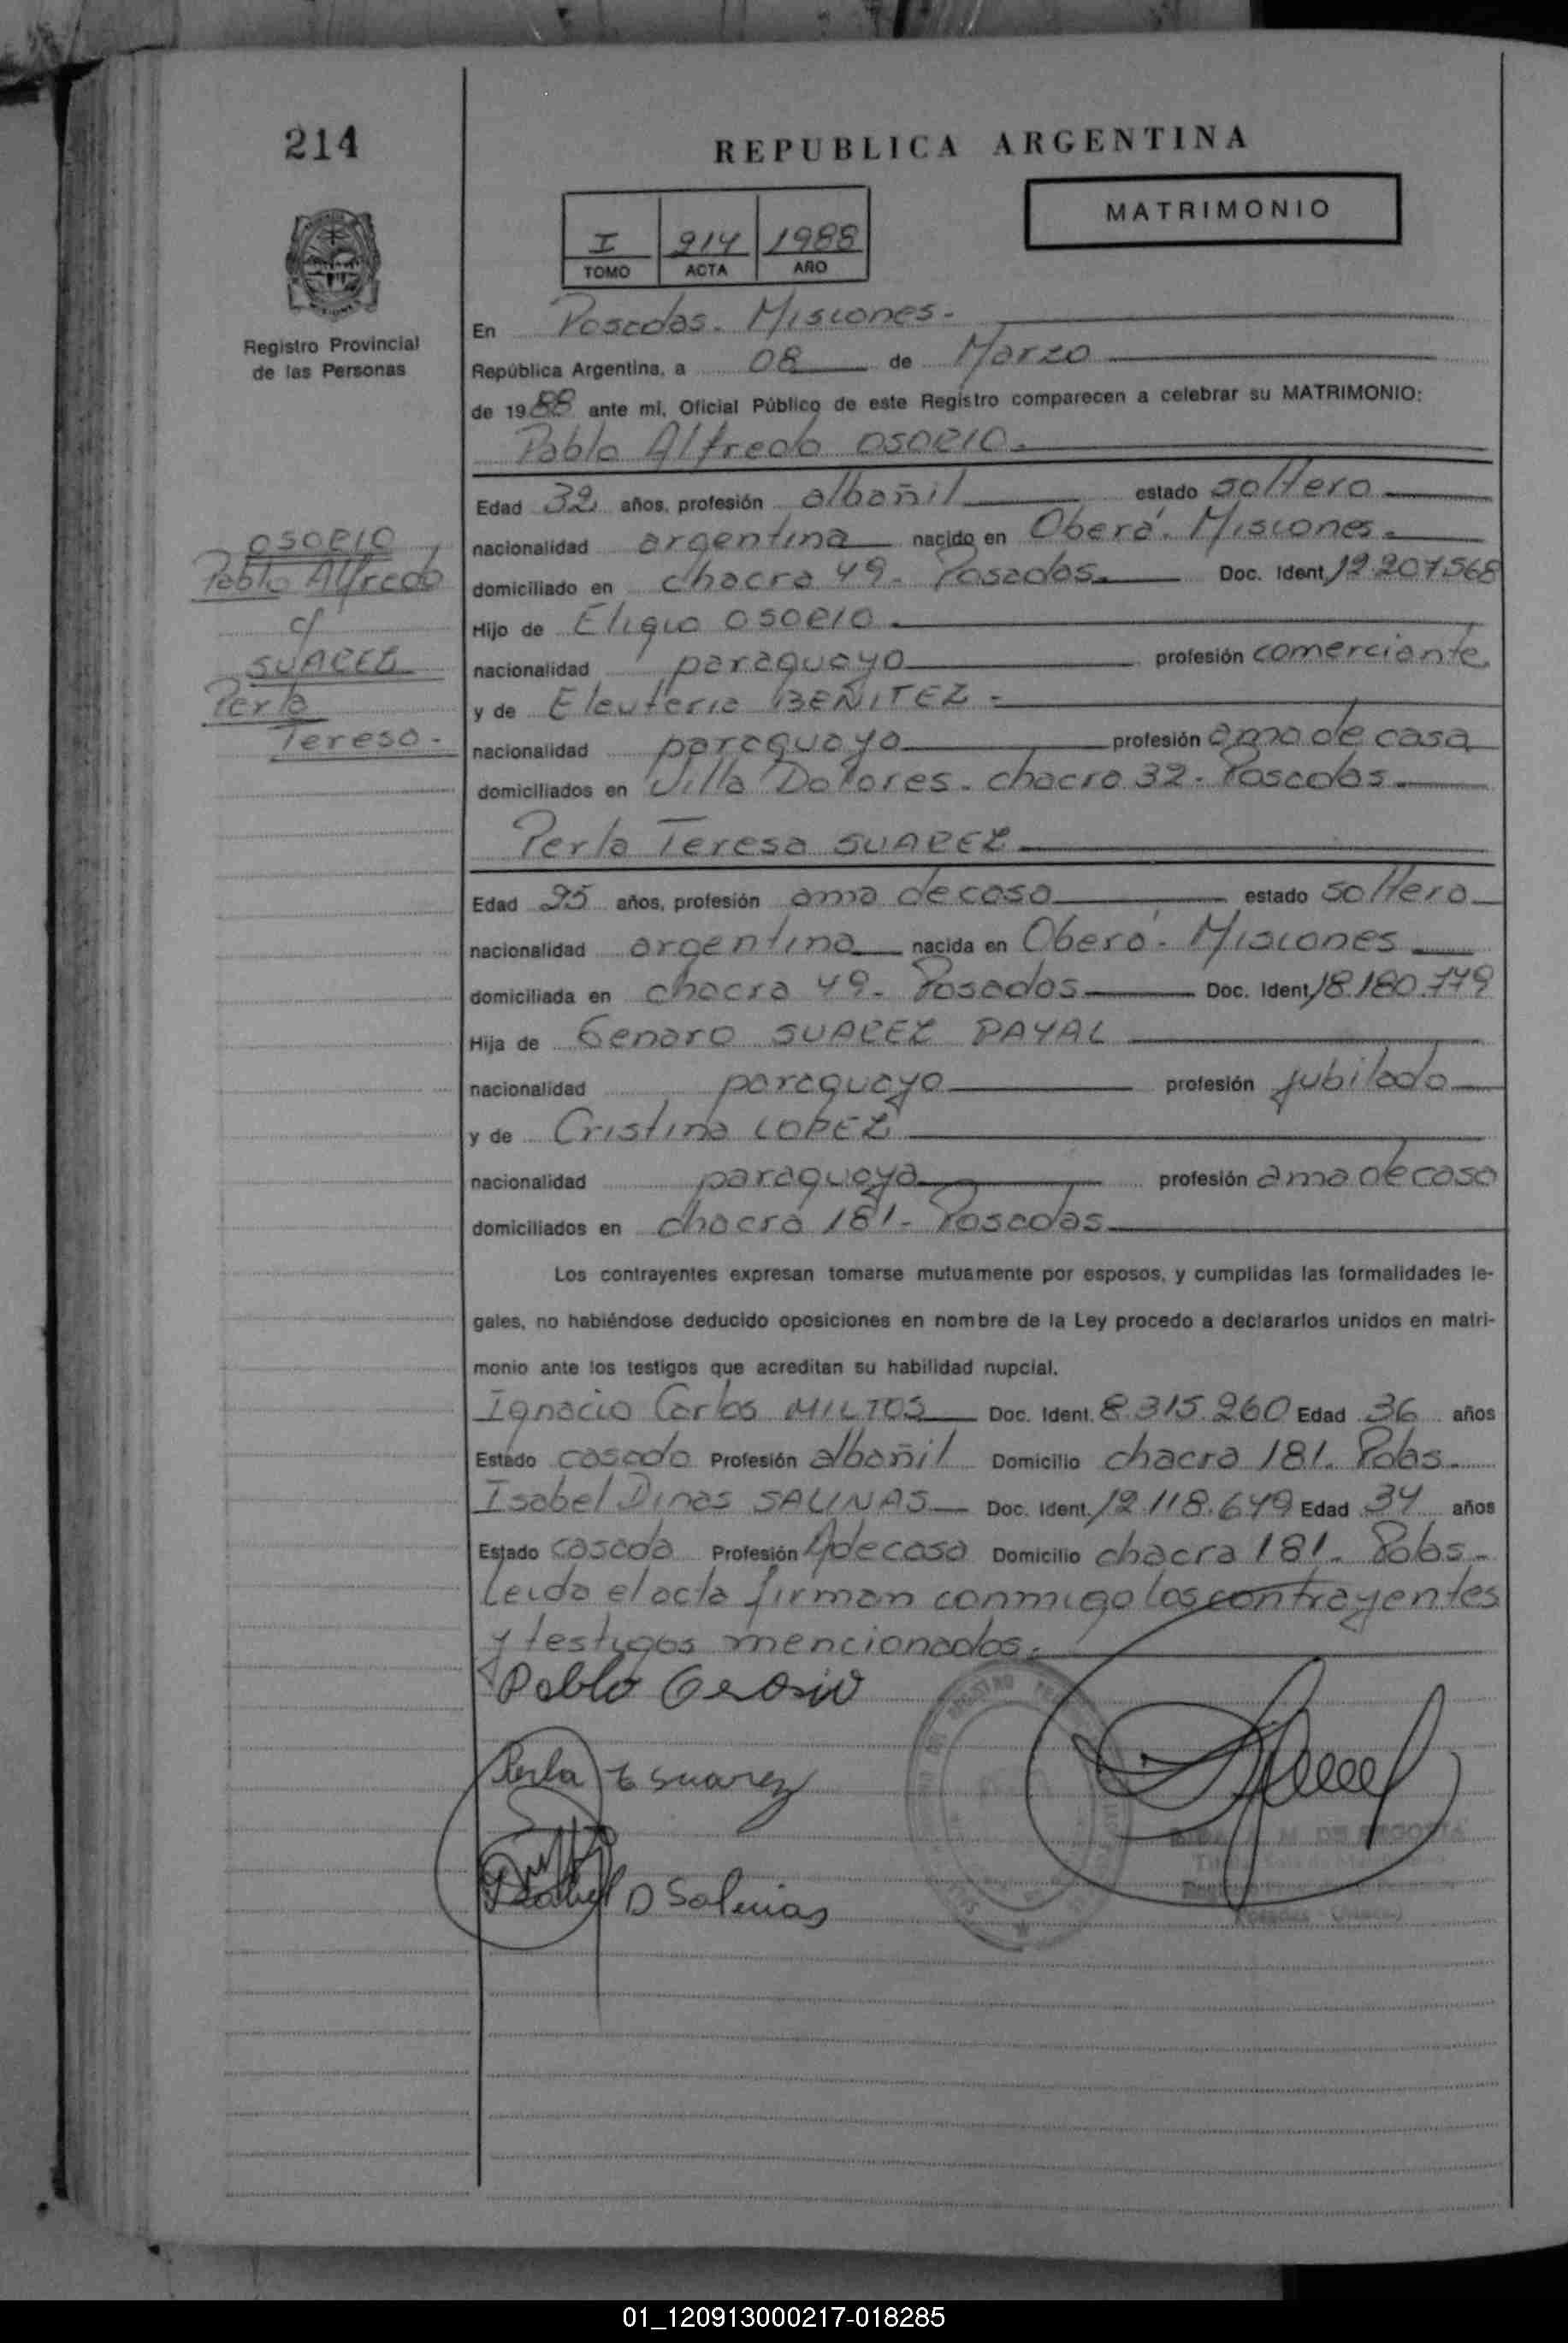 214
REPUBLICA ARGENTINA
MATRIMONIO
I 214 1988
TOMO ACTA AÑO
Registro Provincial
de las Personas
En Posadas. Misiones.
República Argentina, a 08 de Marzo
de 1988 ante mi, Oficial Público de este Registro comparecen a celebrar su MATRIMONIO:
Pablo Alfredo OSORIO.
Edad 32 años, profesión albañil estado soltero
OSORIO
Pablo Alfredo
c/
SUAREZ
Perla
Teresa.
nacionalidad argentina nacido en Oberá. Misiones.
domiciliado en chacra 49. Posadas. Doc. Ident. 12.207.568
Hijo de Eligio OSORIO.
nacionalidad paraguayo profesión comerciante
y de Eleuteria BEÑITEZ.
nacionalidad paraguaya profesión ama de casa
domiciliados en Villa Dolores. chacra 32. Posadas.
Perla Teresa SUAREZ
Edad 25 años, profesión ama de casa estado soltera
nacionalidad argentina nacida en Oberá. Misiones
domiciliada en chacra 49. Posadas Doc. Ident. 18.180.779
Hija de Genaro SUAREZ PAYAL
nacionalidad paraguayo profesión jubilado
y de Cristina LOPEZ
nacionalidad paraguaya profesión ama de casa
domiciliados en chacra 181. Posadas
Los contrayentes expresan tomarse mutuamente por esposos, y cumplidas las formalidades le-
gales, no habiéndose deducido oposiciones en nombre de la Ley procedo a declararlos unidos en matri-
monio ante los testigos que acreditan su habilidad nupcial.
Ignacio Carlos MILTOS Doc. Ident. 8.315.260 Edad 36 años
Estado casado Profesión albañil Domicilio chacra 181. Pdas.
Isabel Dinas SALINAS Doc. Ident. 12.118.649 Edad 34 años
Estado casada Profesión A de casa Domicilio chacra 181. Pdas.
Leída el acta firman conmigo los contrayentes
y testigos mencionados.
Pablo Osorio
Perla T Suarez
Isabel D Salinas
01_120913000217-018285